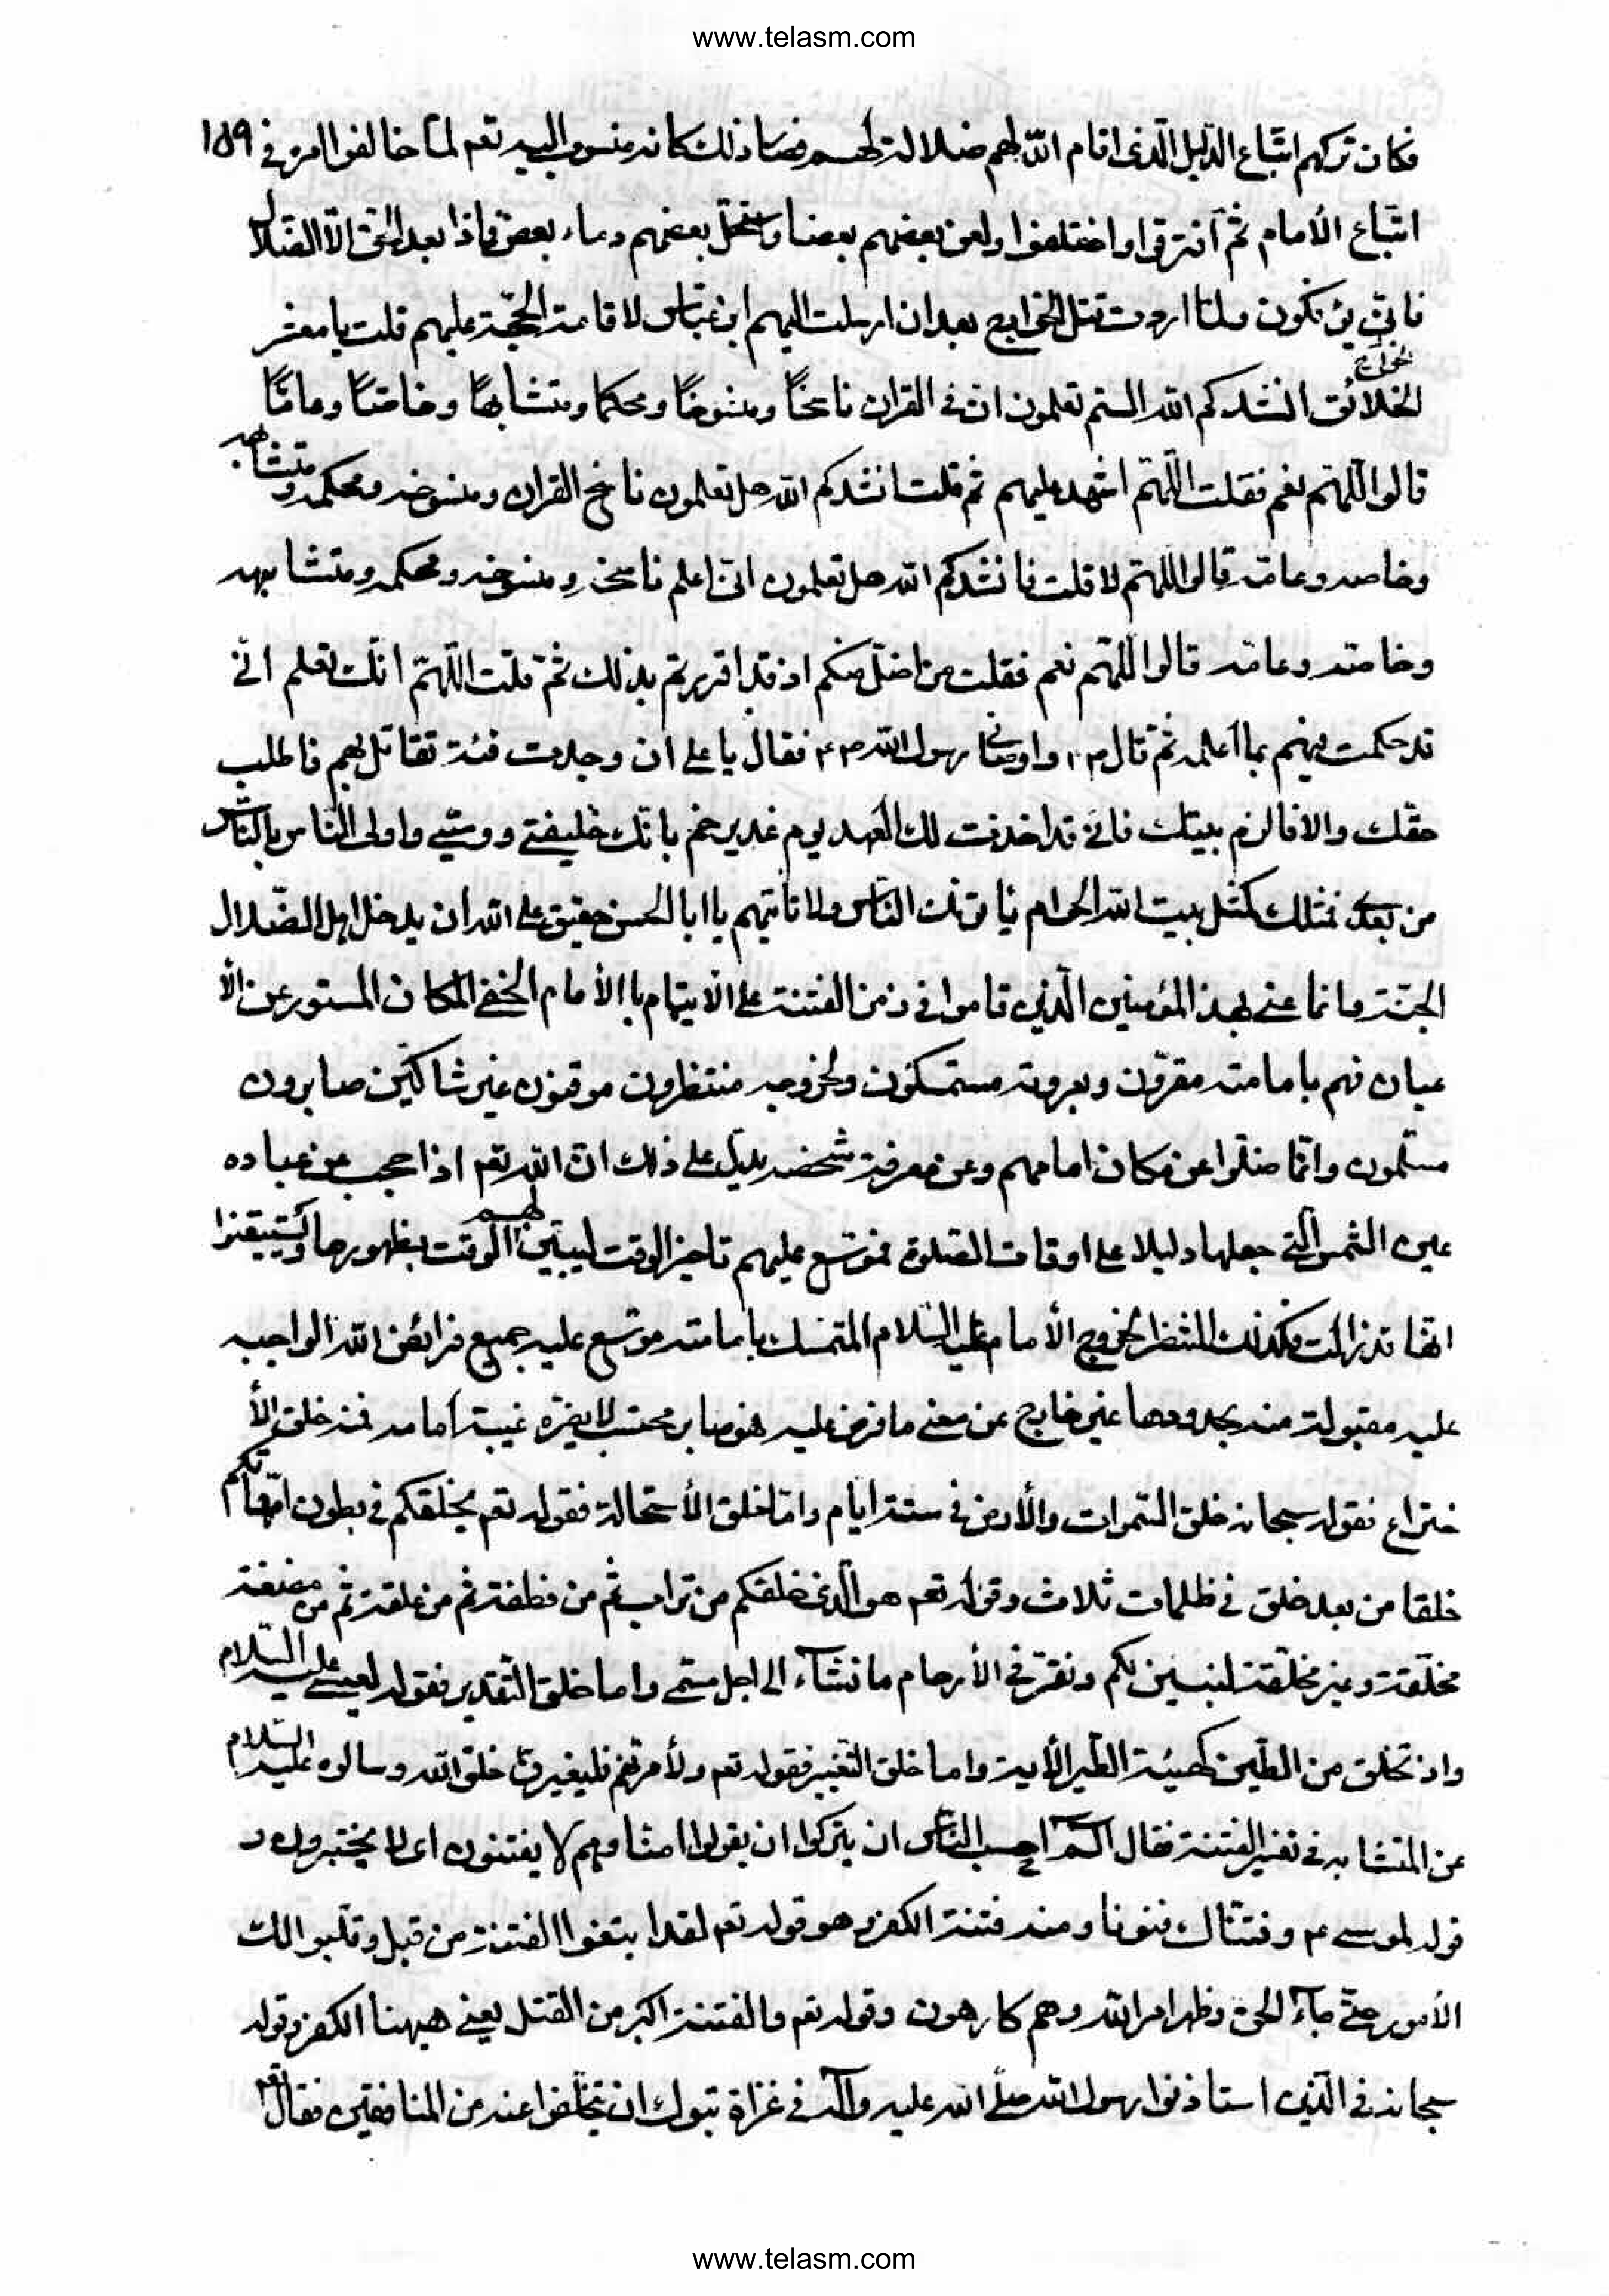 www.telasm.com
فكان تركهم اتباع الدليل الذى اقام الله لهم ضلالة لهم فصار ذلك كانه منسوب اليه تعم لما خالفوا امره فى ١٥٩
اتباع الأمام ثم افترقوا واختلفوا ولعن بعضهم بعضا واستحل بعضهم دماء بعض فماذا بعد الحق الا الضلال
فانى يؤفكون ولما اردت قتل الخوارج بعد ان ارسلت اليهم ابن عباس لاقامة الحجة عليهم قلت يا معشر
الخوارج
الخلائق انشدكم الله الستم تعلمون ان فى القران ناسخًا ومنسوخًا ومحكما ومتشابهًا وخاصًا وعامًا
قالوا اللهم نعم فقلت اللهم اشهد عليهم ثم قلت انشدكم الله هل تعلمون ناسخ القران ومنسوخه ومحكمه ومتشابهه
وخاصه وعامه قالوا اللهم لا قلت فانشدكم الله هل تعلمون انى اعلم ناسخه ومنسوخه ومحكمه ومتشابهه
وخاصه وعامه قالوا اللهم نعم فقلت من اضل منكم اذ قد اقررتم بذلك ثم قلت اللهم انك تعلم انى
قد حكمت فيهم بما اعلمه ثم قال ع٠ واوصانى رسول الله ص٤ فقال يا على ان وجدت فئة تقاتل بهم فاطلب
حقك والا فالزم بيتك فانى قد اخذت لك العهد يوم غدير خم بانك خليفتى ووصيى واولى الناس بالناس
من بعدى فمثلك كمثل بيت الله الحرام ياتونك الناس ولا تاتيهم يا ابا الحسن حقيق على الله ان يدخل اهل الضلال
الجنة وانما عنى بهذا المؤمنين الذين قاموا فى زمن الفتنة على الائتمام بالأمام الخفى المكان المستور عن الأ
عيان فهم بامامته مقرون وبعروته مستمسكون ولخروجه منتظرون موقنون غير شاكين صابرون
مسلمون وانما ضلوا عن مكان امامهم وعن معرفة شخصه يدل على ذلك ان الله تعم اذا حجب عن عباده
عين الشمس التى جعلها دليلا على اوقات الصلوة فموسع عليهم تاخير الوقت ليتبين لهم الوقت بظهورها ويستيقنوا
انها قد زالت فكذلك المنتظر لخروج الأمام عليه السلام المتمسك بامامته موسع عليه جميع فرائض الله الواجبه
عليه مقبولة منه بحدودها غير خارج عن معنى ما فرض عليه فهو صابر محتسب لا يضره غيبة امامه فمنه خلق الأ
ختراع فقوله سبحانه خلق السموات والأرض فى ستة ايام واما خلق الأستحالة فقوله تعم يخلقكم فى بطون امهاتكم
خلقا من بعد خلق فى ظلمات ثلاث وقوله تعم هو الذى خلقكم من تراب ثم من نطفة ثم من علقة ثم من مضغة
مخلقة وغير مخلقة لنبين لكم ونقر فى الأرحام ما نشاء الى اجل مسمى واما خلق التقدير فقوله لعيسى عليه السلام
واذ تخلق من الطين كهيئة الطير الأية واما خلق التغيير فقوله تعم ولأمرنهم فليغيرن خلق الله وسالوه عليه السلام
عن المتشابه فى تفسير الفتنة فقال الم احسب الناس ان يتركوا ان يقولوا امنا وهم لا يفتنون اى لا يختبرون و
قوله لموسى ع وفتناك فتونا ومنه فتنة الكفر وهو قوله تعم لقد ابتغوا الفتنة من قبل وقلبوا لك
الأمور حتى جآء الحق وظهر امر الله وهم كارهون وقوله تعم والفتنة اكبر من القتل يعنى هيهنا الكفر وقوله
سبحانه فى الذين استاذنوا رسول الله صلى الله عليه وآله فى غزاة تبوك ان يتخلفوا عنه من المنافقين فقال تعم
www.telasm.com